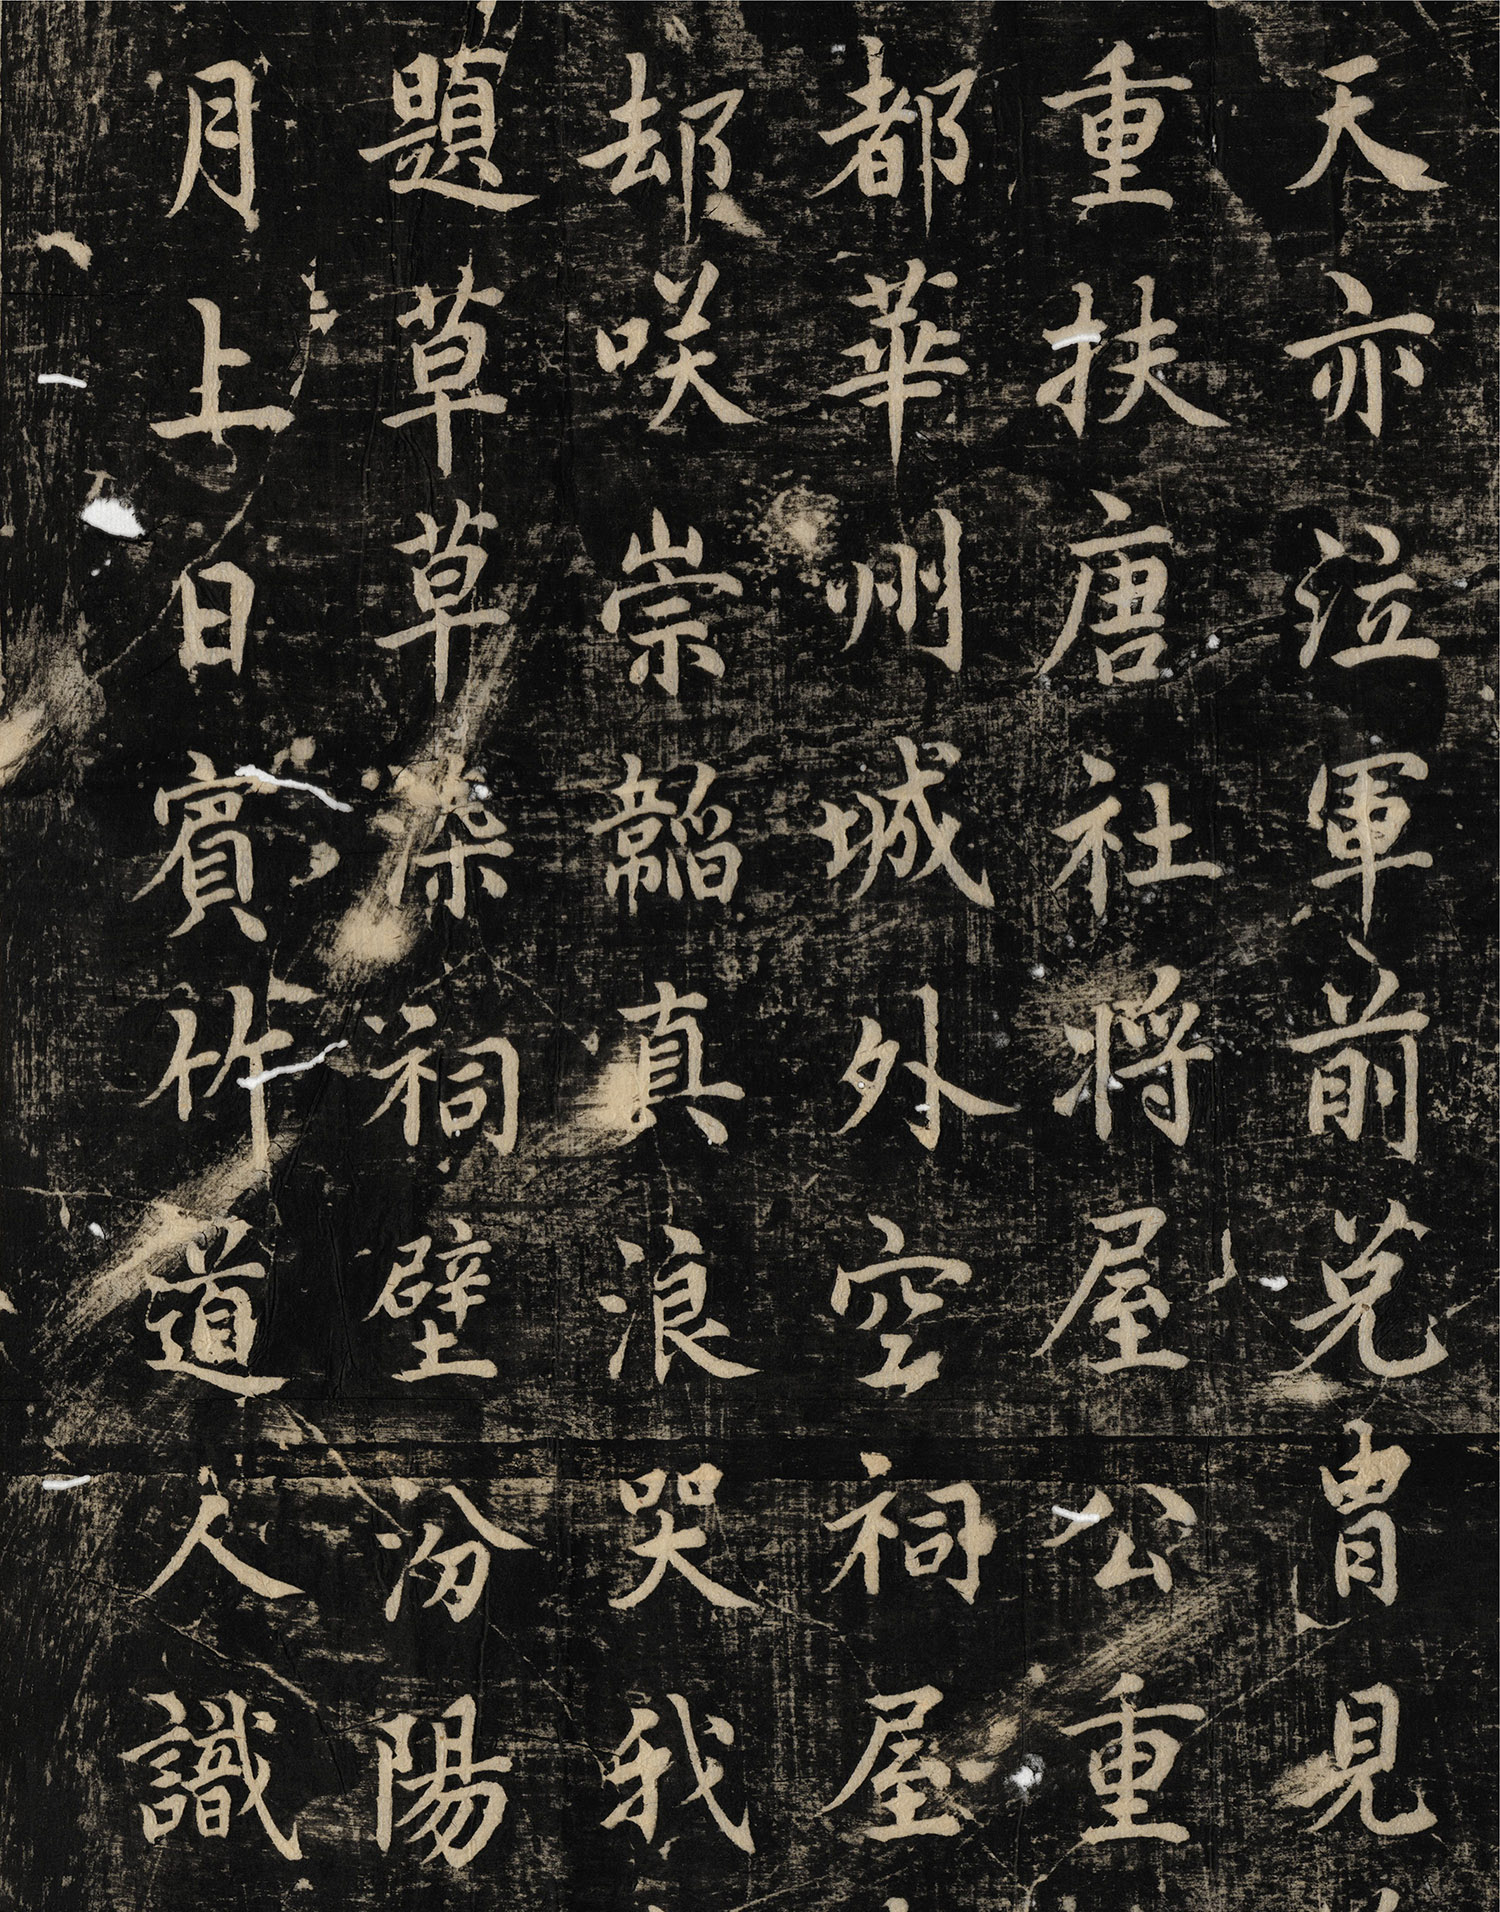 天亦泣軍前免胄見
重扶唐社將屋公重
都華州城外空祠屋
却咲崇韜真浪哭我
題草草染祠壁汾陽
月上日賓竹道人識